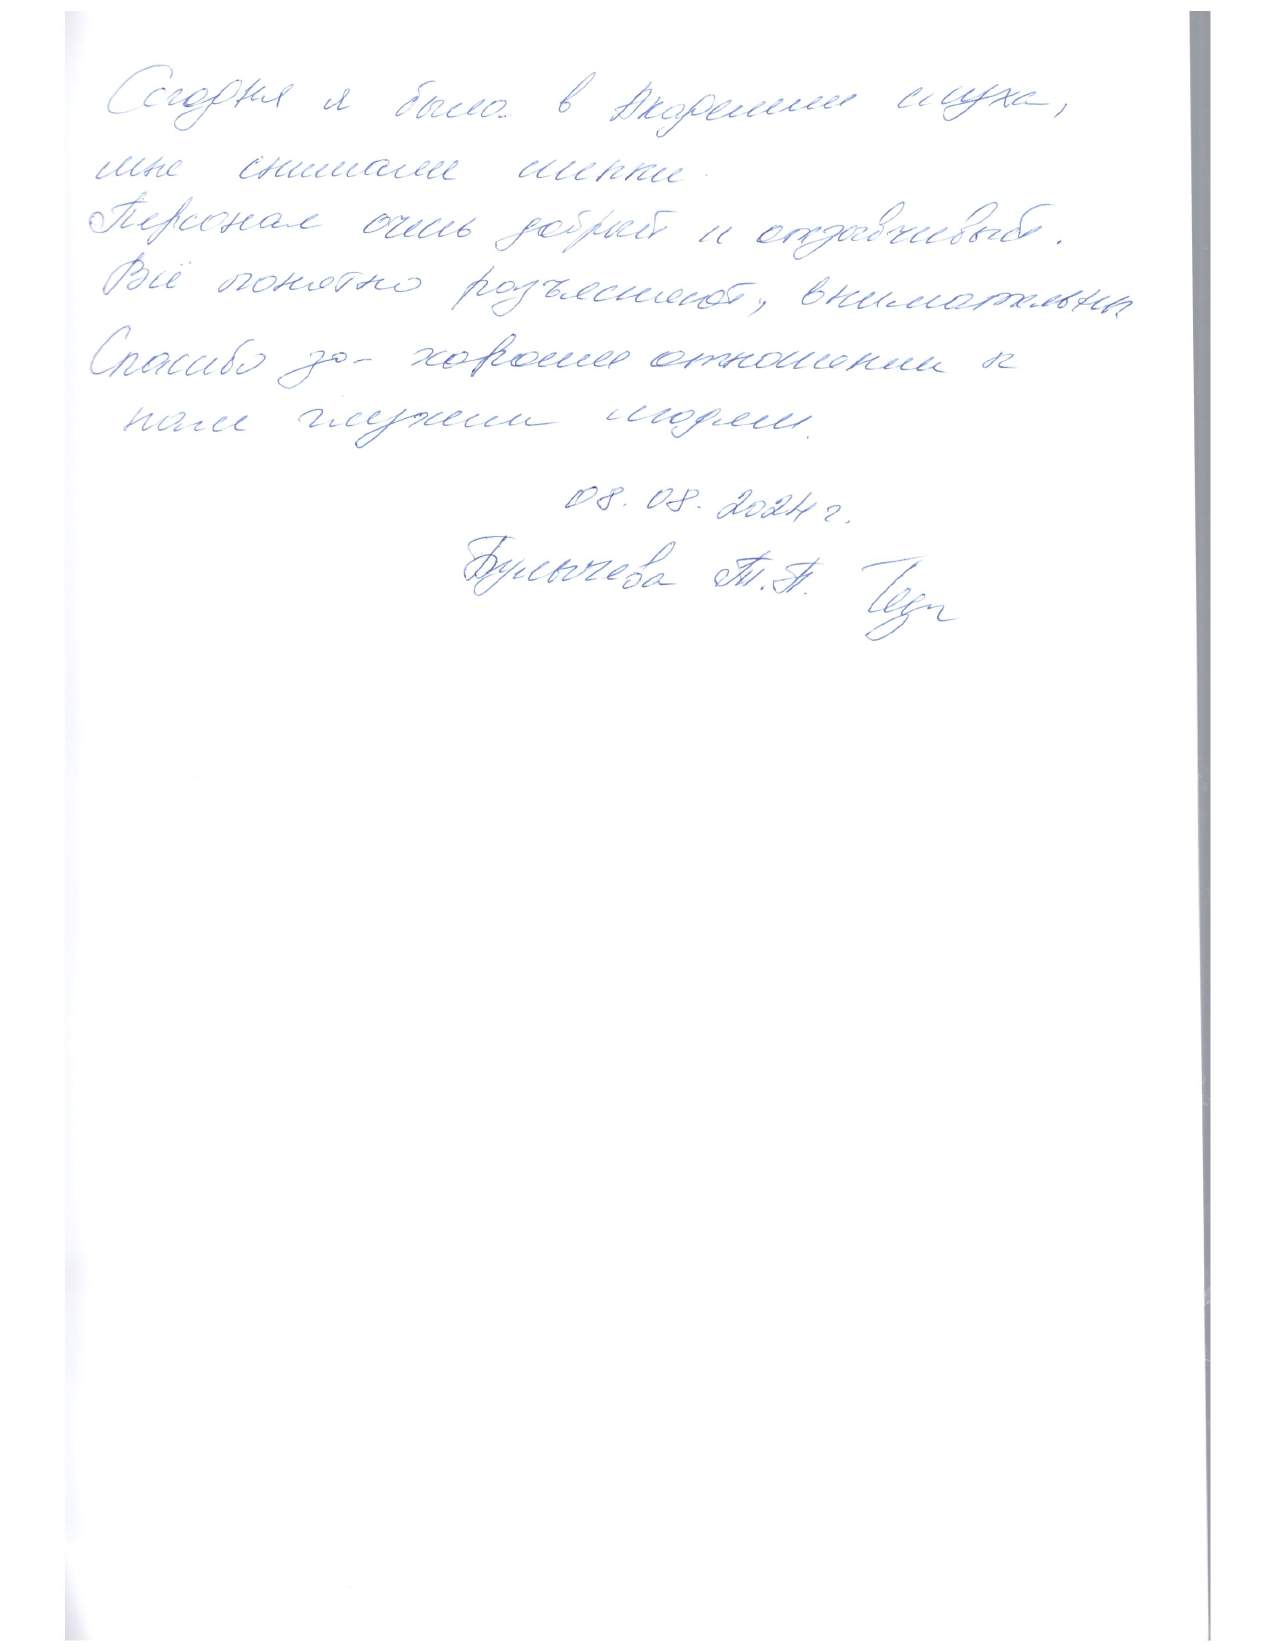 Сегодня я была в Академии слуха,
мне снимали слепки.
Персонал очень добрый и отзывчивый.
Всё понятно разъясняют, внимательны
Спасибо за - хорошее отношении к
нам глухим людям.
08.08.2024 г.
Булычева Т.П.